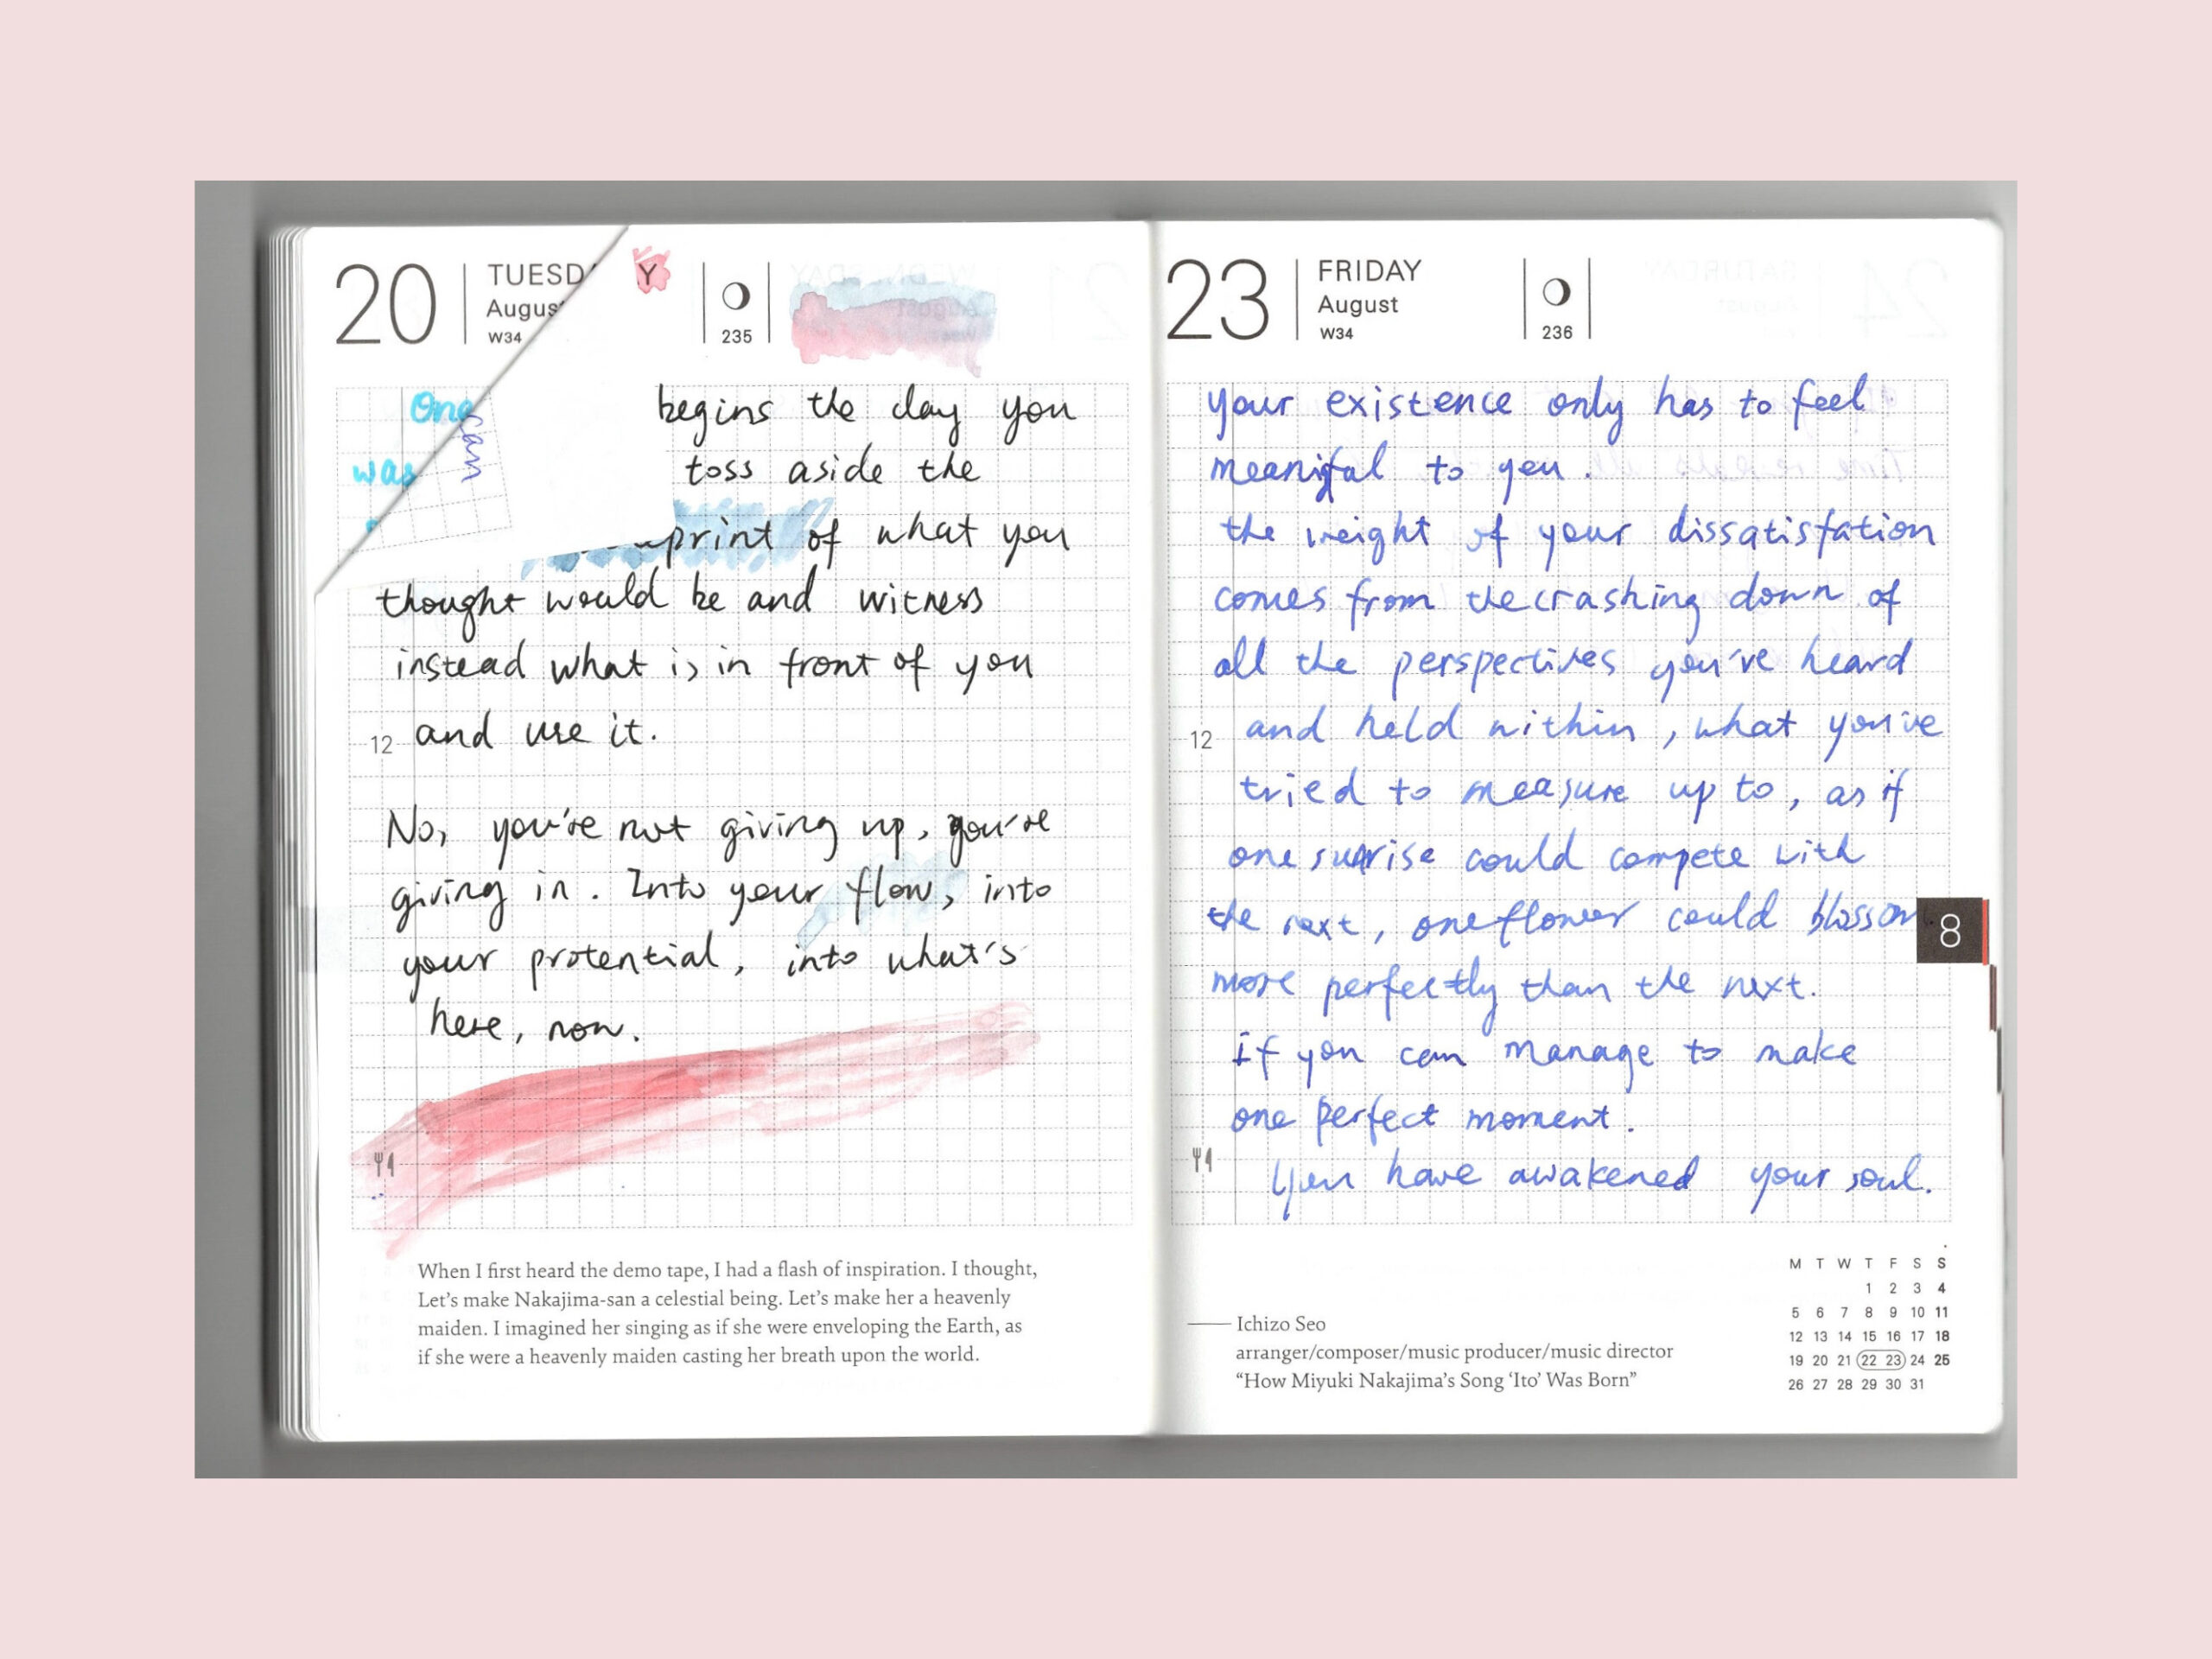 20 TUESD Y
Augus
W34
235
One can begins the day you
was toss aside the
print of what you
thought would be and witness
instead what is in front of you
12 and use it.
No, you're not giving up, you're
giving in. Into your flow, into
your protential, into what's
here, now.
When I first heard the demo tape, I had a flash of inspiration. I thought,
Let's make Nakajima-san a celestial being. Let's make her a heavenly
maiden. I imagined her singing as if she were enveloping the Earth, as
if she were a heavenly maiden casting her breath upon the world.
23 FRIDAY
August
W34
236
your existence only has to feel
meanigful to you.
the weight of your dissatisfation
comes from the crashing down of
all the perspectives you've heard
12 and held within, what you've
tried to measure up to, as if
one sunrise could compete with
the next, one flower could blossom
8
more perfectly than the next.
If you can manage to make
one perfect moment.
You have awakened your soul.
Ichizo Seo
arranger/composer/music producer/music director
“How Miyuki Nakajima's Song ‘Ito’ Was Born”
M T W T F S S
1 2 3 4
5 6 7 8 9 10 11
12 13 14 15 16 17 18
19 20 21 22 23 24 25
26 27 28 29 30 31